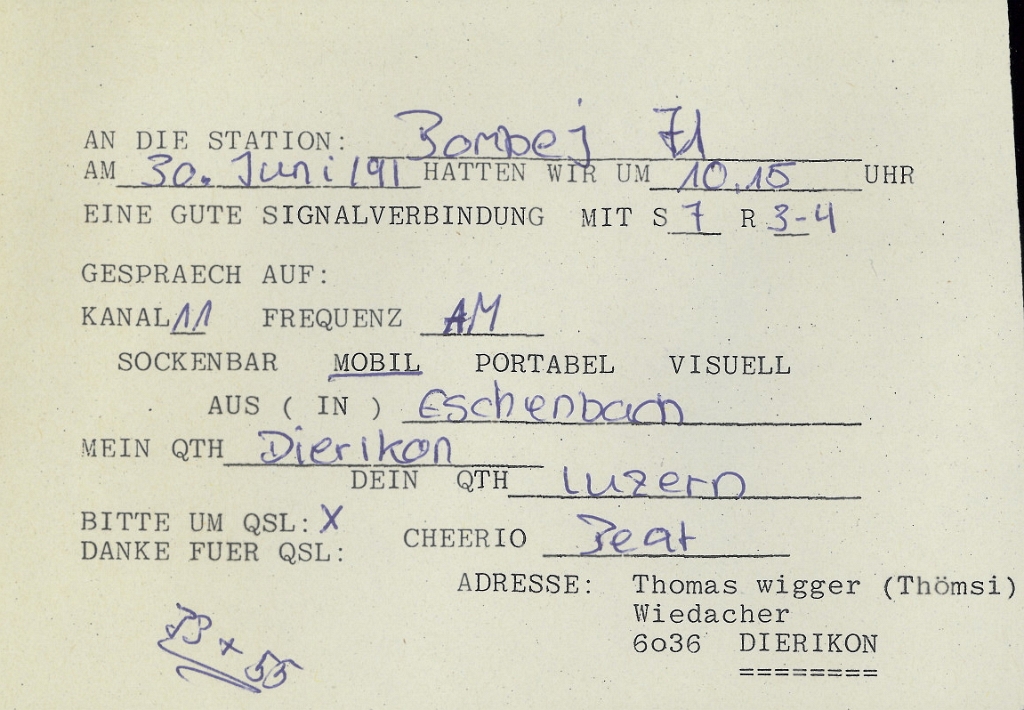 AN DIE STATION: Bombej 71
AM 30. Juni 91 HATTEN WIR UM 10.15 UHR
EINE GUTE SIGNALVERBINDUNG MIT S 7 R 3-4
GESPRAECH AUF:
KANAL 11 FREQUENZ AM
SOCKENBAR MOBIL PORTABEL VISUELL
AUS ( IN ) Eschenbach
MEIN QTH Dierikon
DEIN QTH Luzern
BITTE UM QSL: X
DANKE FUER QSL: CHEERIO Beat
ADRESSE: Thomas wigger (Thömsi)
Wiedacher
6o36 DIERIKON
========
73 + 55